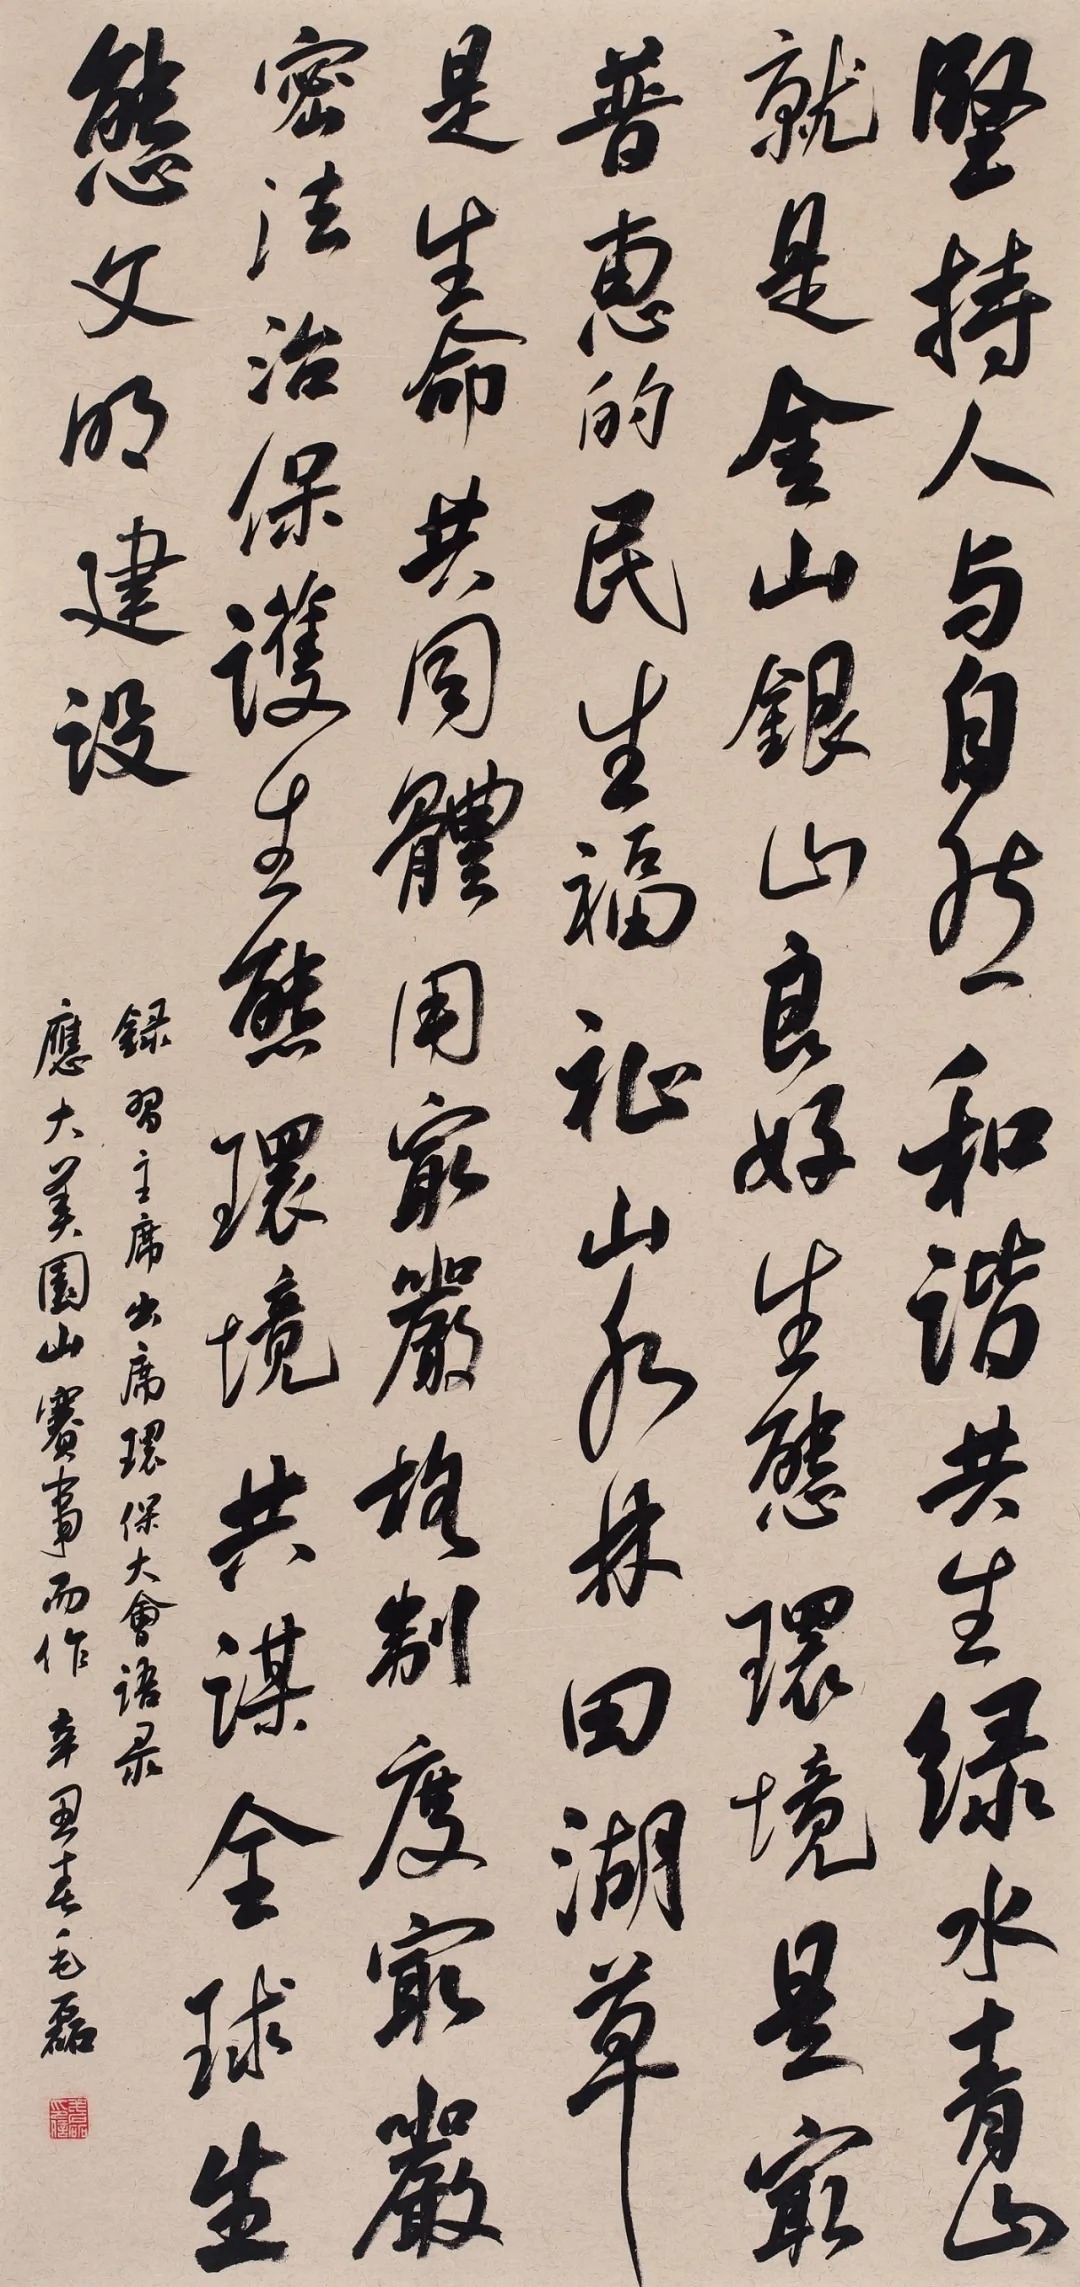 堅持人与自然和谐共生绿水青山
就是金山銀山良好生態環境是㝡
普惠的民生福祉山水林田湖草
是生命共同體用㝡嚴格制度㝡嚴
密法治保護生態環境共謀全球生
態文明建设
録習主席出席環保大會语录
應大美圖山賽事而作辛丑春毛磊